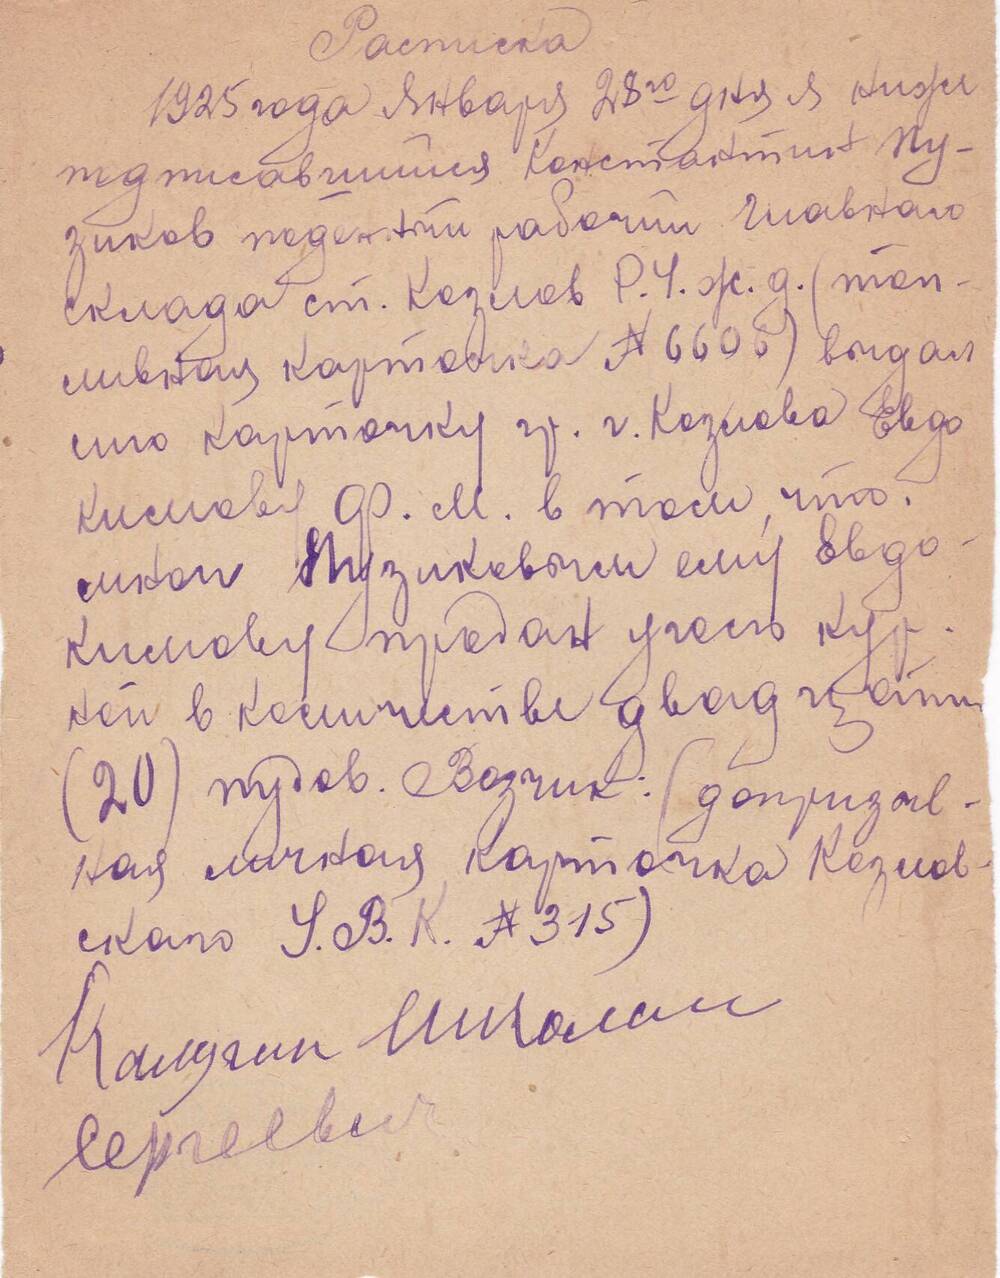 Расписка
1925 года Января 28го дня я ниже
подписавшийся Константин Пу-
зиков поденный рабочий Главного
склада ст. Козлов Р.У.ж.д. (топ-
ливная карточка № 6606) выдал
сию карточку гр. г. Козлова Евдо
кимову Ф. М. в том, что.
мною Пузиковым ему Евдо-
кимову продан уголь кур-
ной в количестве двадцати
(20) пудов. Возчик: (допризыв-
ная личная карточка Козлов-
ского У.В.К. № 315)
Калугин Николай
Сергеевич